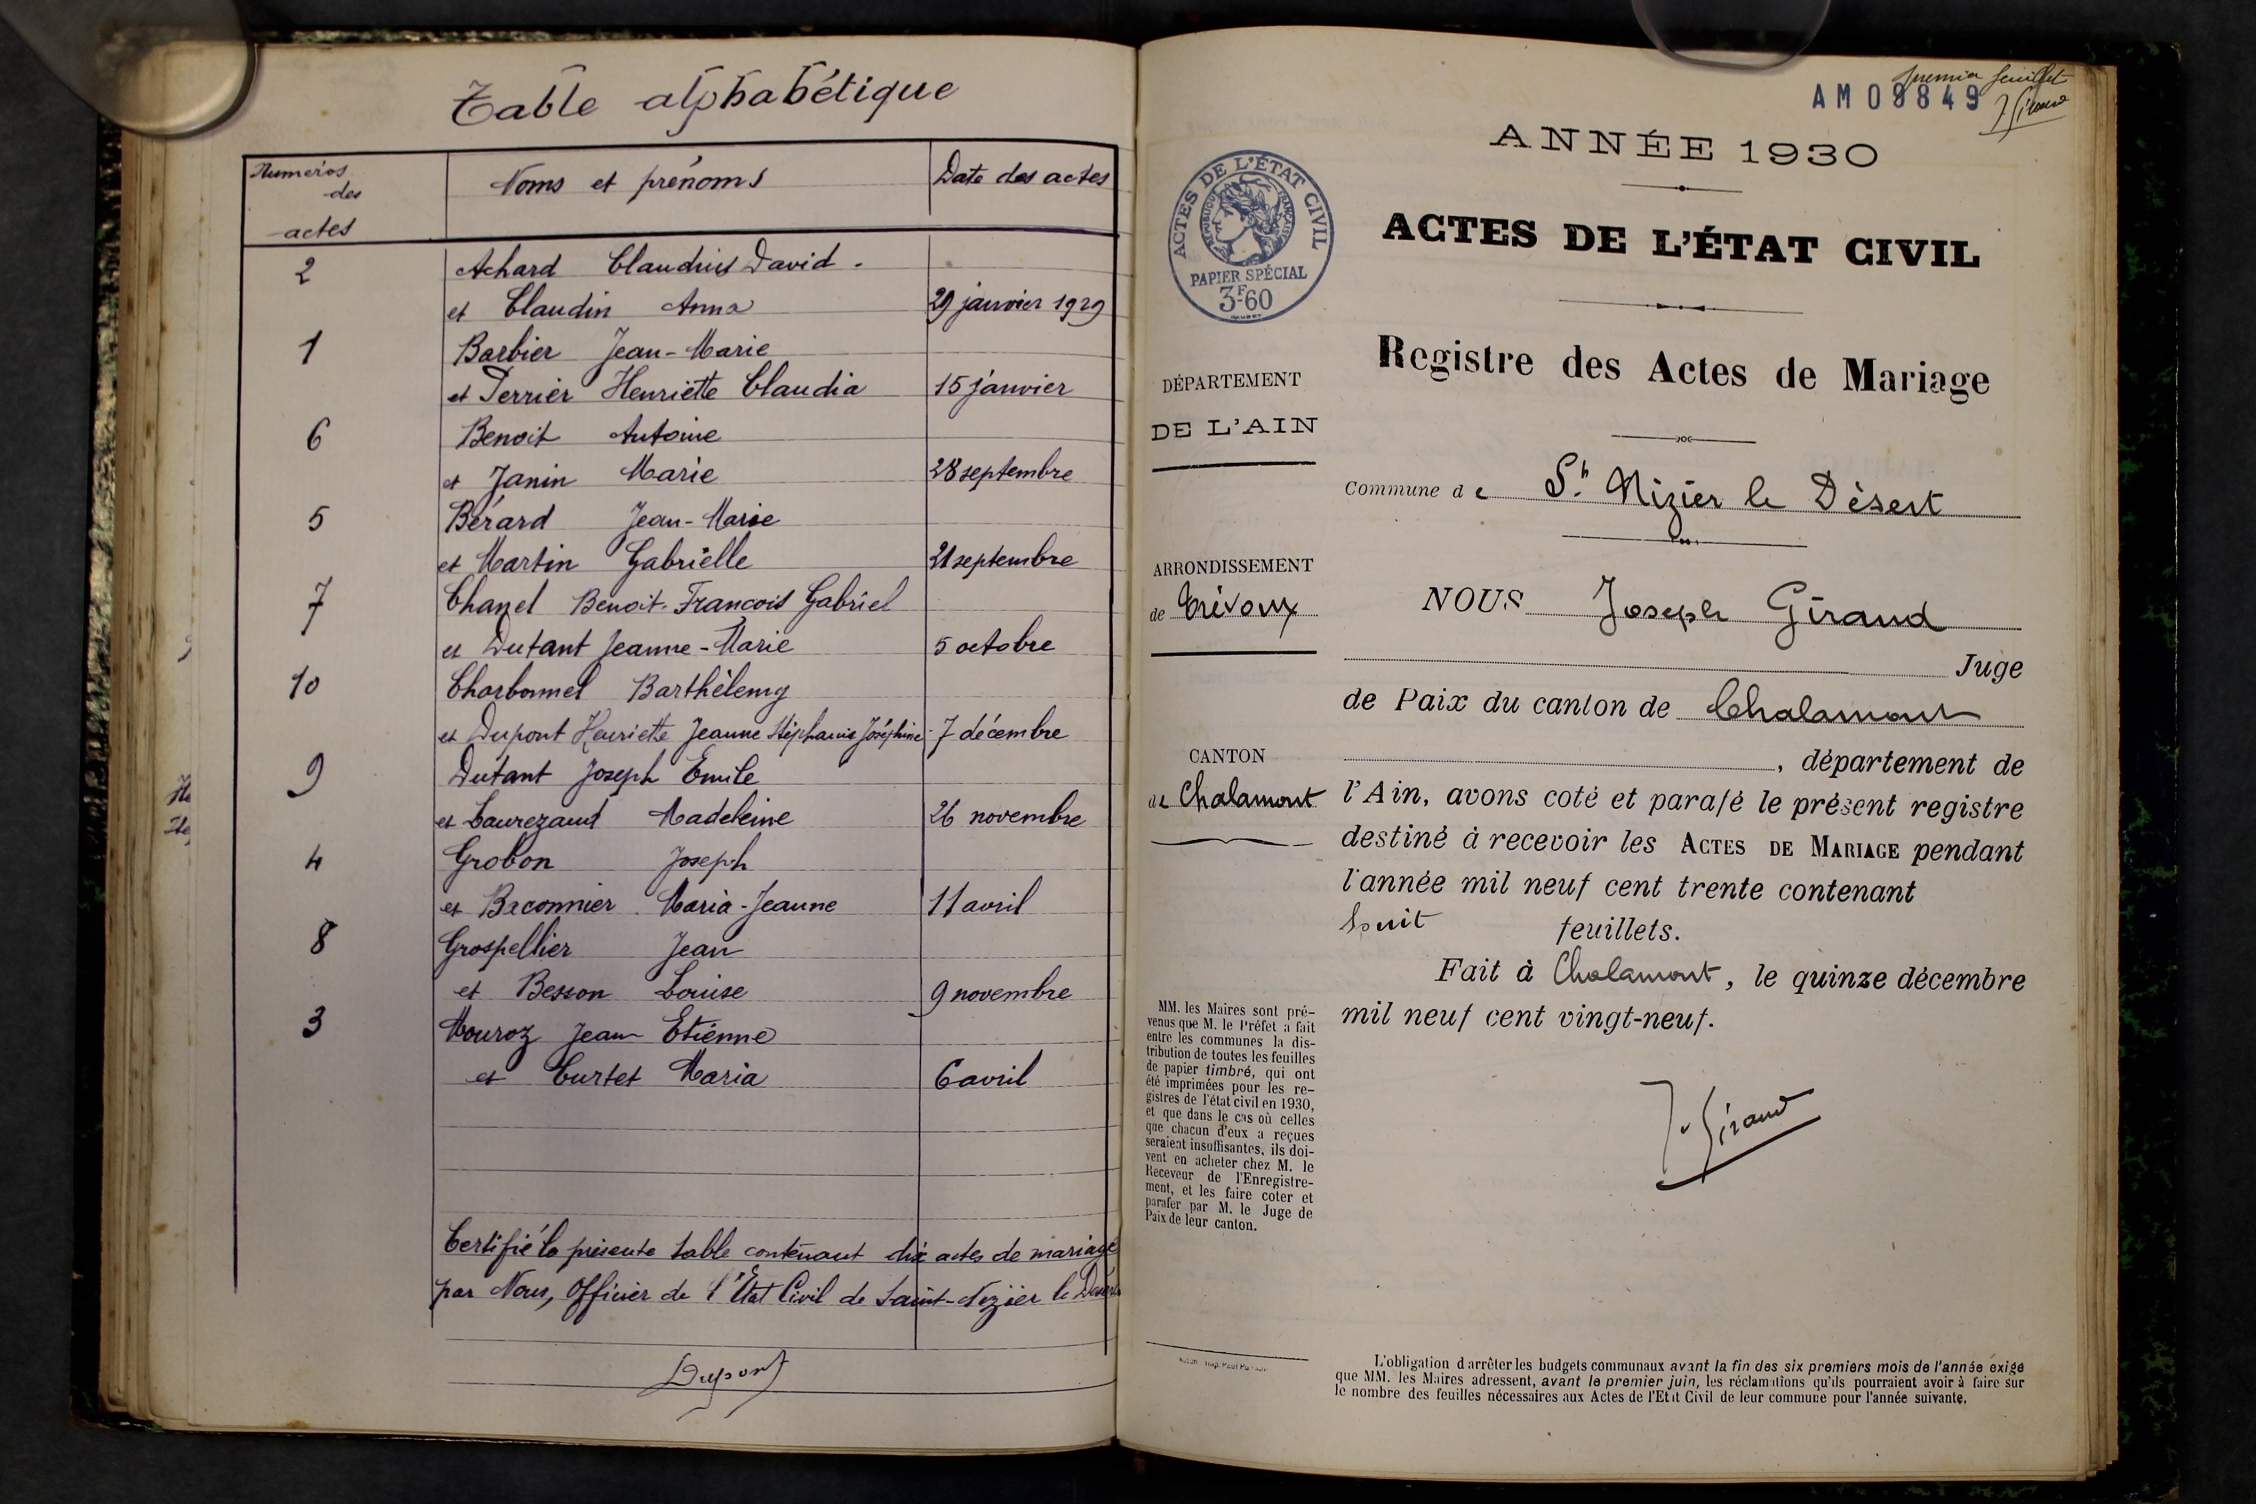 Table alphabétique
Numéros des actes
Noms et prénoms
Date des actes
2
Achard Claudius David.
et Claudin Anna
29 janvier 1929
1
Barbier Jean-Marie
et Perrier Henriette Claudia
15 janvier
6
Benoit Antoine
et Janin Marie
28 septembre
5
Bérard Jean-Marie
et Martin Gabrielle
21 septembre
7
Chanel Benoit-François Gabriel
et Dutant Jeanne-Marie
5 octobre
10
Charbonnel Barthélemy
et Dupont Henriette Jeanne Stéphanie Joséphine
7 décembre
9
Dutant Joseph Emile
et Madeleine
26 novembre
4
Grobon Joseph
et Baconnier Maria-Jeanne
11 avril
8
Grospellier Jean
et Besson Louise
9 novembre
3
Mouroz Jean Etienne
et Curtet Maria
6 avril
Certifié la présente table contenant dix actes de mariage
par Nous, Officier de l'Etat Civil de Saint-Nizier le Désert
Dupont
premier feuillet
J Giraud
AM 09849
ANNÉE 1930
ACTES DE L'ÉTAT CIVIL
RÉPUBLIQUE FRANÇAISE
PAPIER SPÉCIAL
3F.60
ACTES DE L'ÉTAT CIVIL
Registre des Actes de Mariage
DÉPARTEMENT
DE L'AIN
Commune de St Nizier le Désert
ARRONDISSEMENT
de Trévoux
NOUS Joseph Giraud
Juge
de Paix du canton de Chalamont
CANTON
de Chalamont
, département de
l'Ain, avons coté et parafé le présent registre
destiné à recevoir les ACTES DE MARIAGE pendant
l'année mil neuf cent trente contenant
huit feuillets.
Fait à Chalamont, le quinze décembre
mil neuf cent vingt-neuf.
J. Giraud
MM. les Maires sont pré-
venus que M. le Préfet a fait
entre les communes la dis-
tribution de toutes les feuilles
de papier timbré, qui ont
été imprimées pour les re-
gistres de l'état civil en 1930,
et que dans le cas où celles
que chacun d'eux a reçues
seraient insuffisantes, ils doi-
vent en acheter chez M. le
Receveur de l'Enregistre-
ment, et les faire coter et
parafer par M. le Juge de
Paix de leur canton.
L'obligation d'arrêter les budgets communaux avant la fin des six premiers mois de l'année exige
que MM. les Maires adressent, avant le premier juin, les réclamations qu'ils pourraient avoir à faire sur
le nombre des feuilles nécessaires aux Actes de l'Etat Civil de leur commune pour l'année suivante.